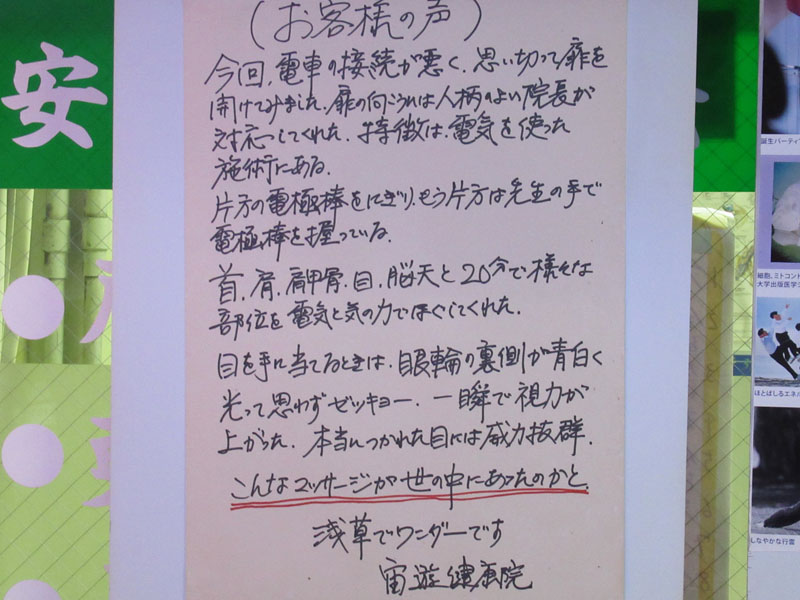 (お客様の声)
今回、電車の接続が悪く、思い切って扉を
開けてみました。扉の向こうは人柄のよい院長が
対応してくれた。特徴は、電気を使った
施術にある。
片方の電極棒をにぎり、もう片方は先生の手で
電極棒を握っている。
首、肩、肩甲骨、目、脳天と20分で様々な
部位を電気と気の力でほぐしてくれた。
目を手に当てるときは、眼輪の裏側が青白く
光って思わずゼッキョー。一瞬で視力が
上がった。本当につかれた目には威力抜群。
こんなマッサージが世の中にあったのかと。
浅草でワンダーです
宙遊健康院
安
誕生パーティ
細胞、ミトコンド
大学出版医学
ほとばしるエネル
しなやかな行雲